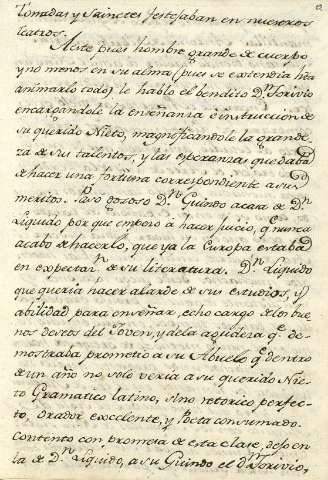 12
Tonadas y Sainetes festejaban en nuestros
teatros.
A este pues hombre grande de cuerpo
y no menos en su alma (pues se extendia ha
animarlo todo) le hablo el bendito Dn. Torivio
encargandole la enseñanza e instruccion de
su querido Nieto, magnificandole la grande-
za de sus talentos, y las esperanzas que daba
de hacer una fortuna correspondiente a sus
meritos. Paso gozoso Dn. Guindo a casa de Dn.
Liquido por que empezo à hacer juicio, q. nunca
acabo de hacerlo, que ya la Europa estaba
en expectan. de su literatura. Dn. Liquido
que queria hacer alarde de sus estudios, y
abilidad para enseñar, echo cargo de los bue
nos deseos del Joven, y de la agudeza q. de-
mostraba prometio a su Abuelo q. dentro
de un año no solo veria a su querido Nie-
to Gramatico latino, sino retorico perfec-
to, Orador excelente, y Poeta consumado.
Contento con promesa de esta clase, dejo en
la de Dn. Liquido, a su Guindo el Dn. Torivio,